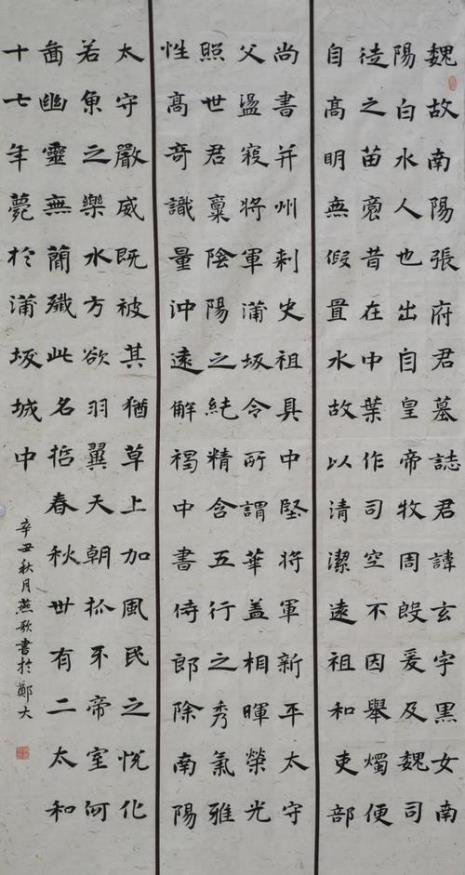 魏故南陽張府君墓誌君諱玄字黑女南
陽白水人也出自皇帝牧周殷爰及魏司
徒之苗裔昔在中葉作司空不因舉燭便
自高明無假置水故以清潔遠祖和吏部
尚書并州刺史祖具中堅將軍新平太守
父盪寇將軍蒲坂令所謂華蓋相暉榮光
照世君稟陰陽之純精含五行之秀氣雅
性高奇識量沖遠解褐中書侍郎除南陽
太守嚴威既被其猶草上加風民之悅化
若魚之樂水方欲羽翼天朝抓牙帝室何
啚幽靈無簡殲此名哲春秋丗有二太和
十七年薨於蒲坂城中
辛丑秋月燕歌書於鄭大